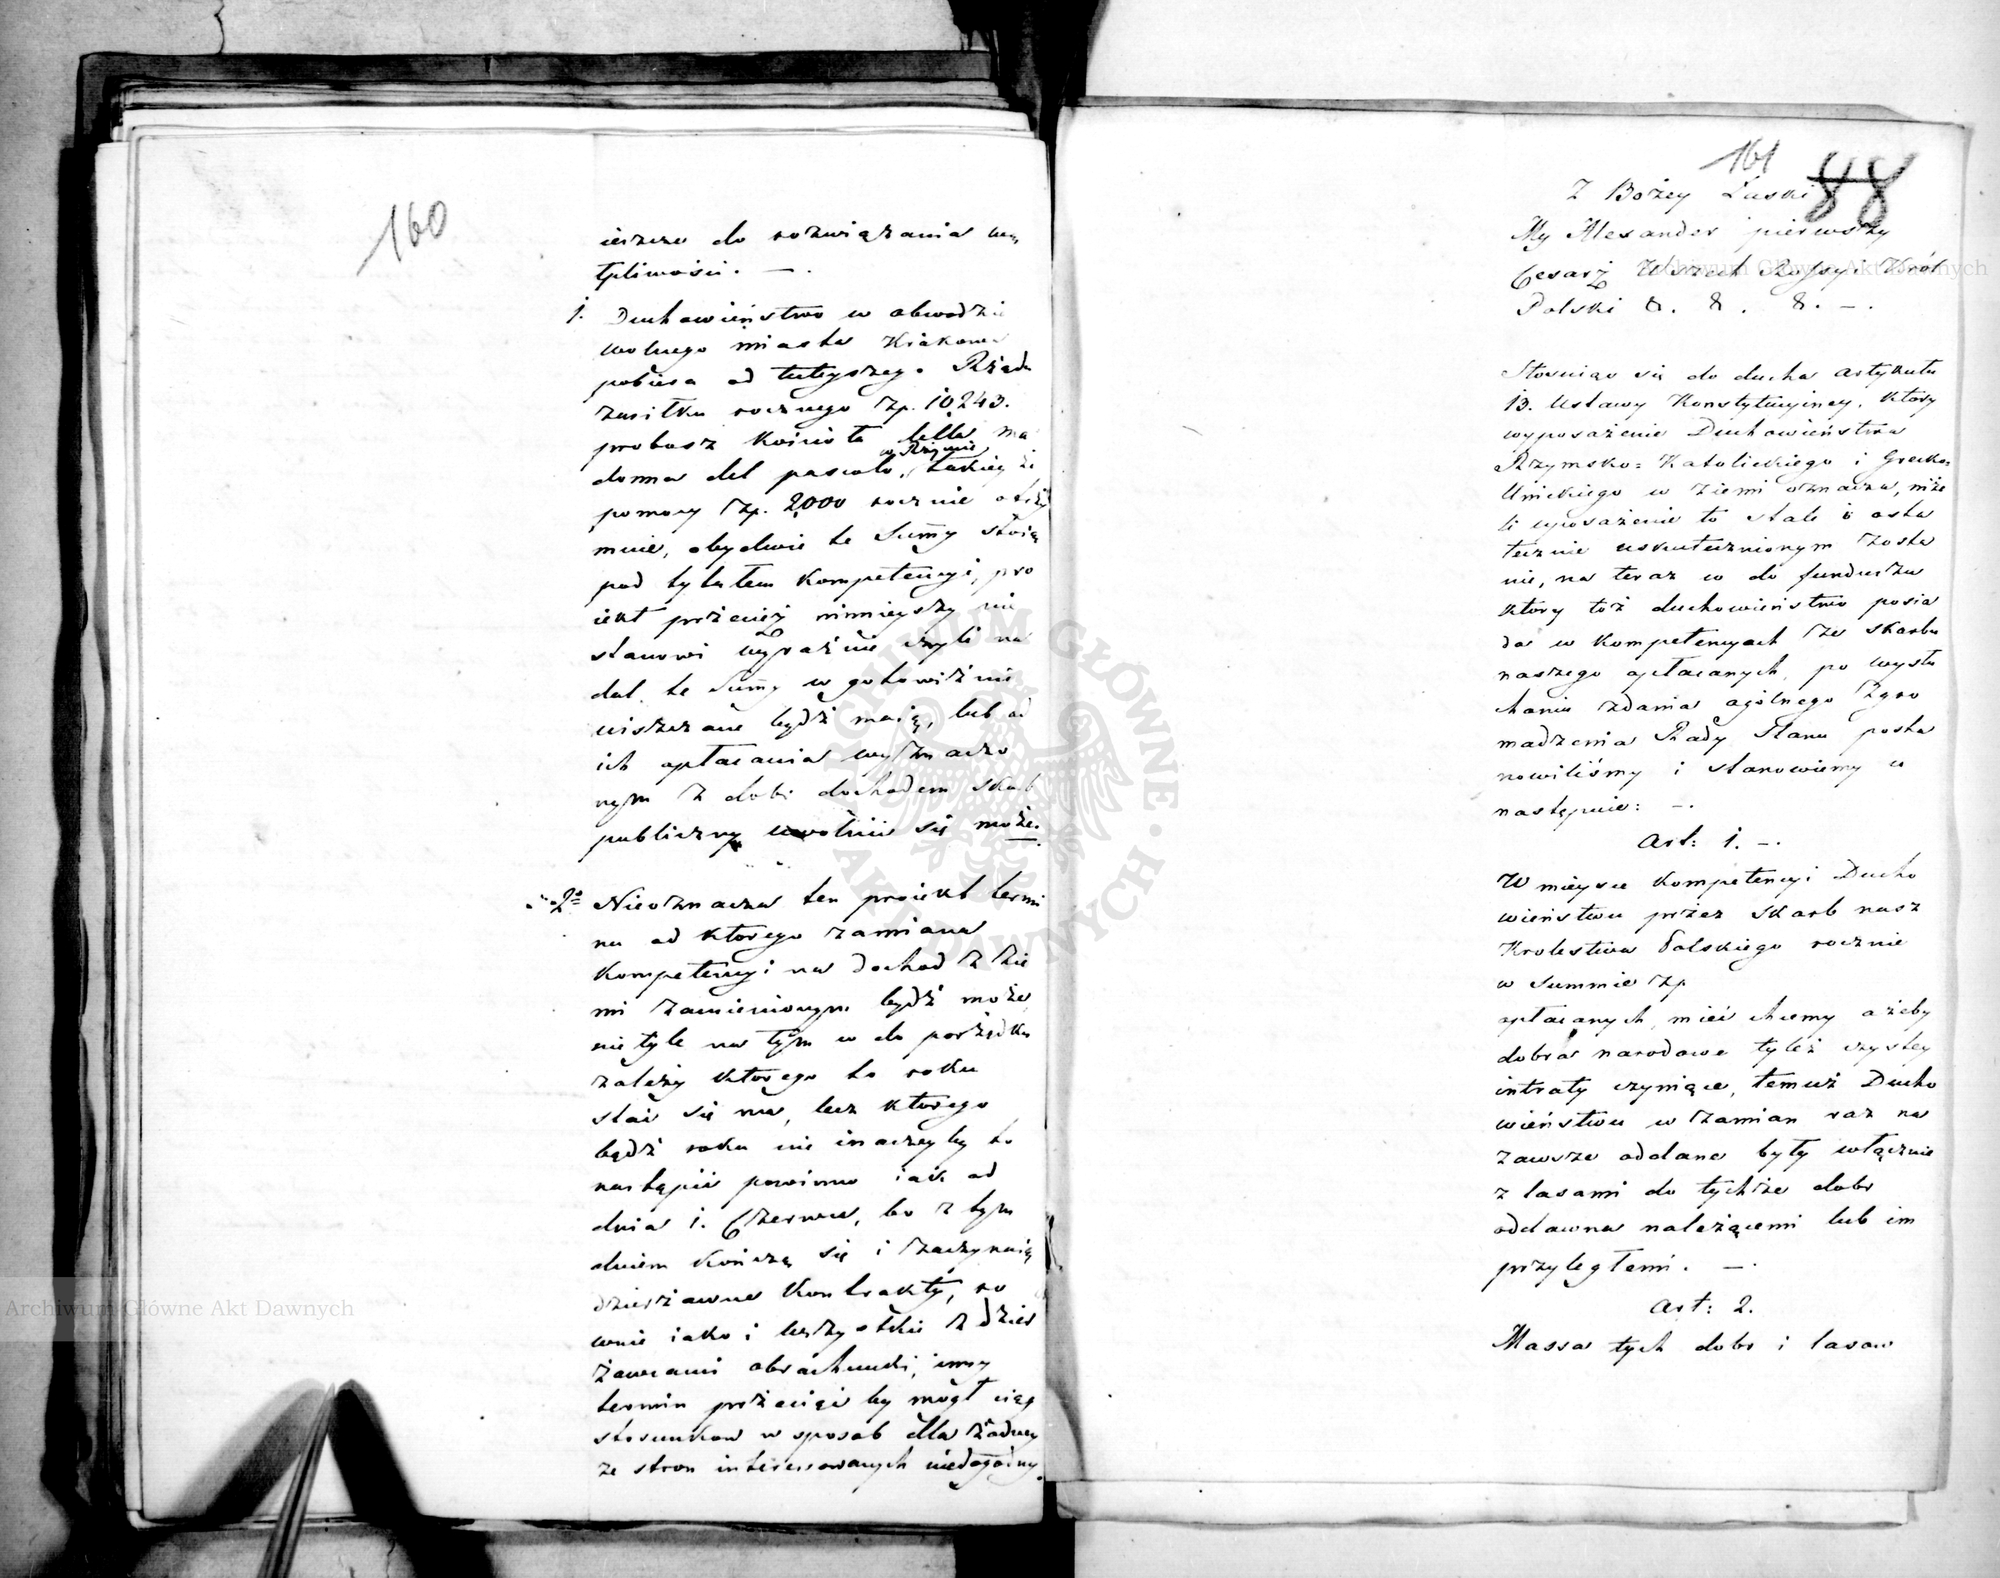 160
ieszcze do rozwiązania wąt
pliwości. —.
1. Duchowieństwo w obwodzie
wolnego miasta Krakowa
pobiera od tuteyszego Rządu
zasiłku rocznego Zp. 10243.
probosz kościoła della ma
donna del pascolo, w Rzymie takiey że
pomocy Zp. 2000 rocznie otrzy
muie, obydwie te Summy stoią
pod tytułem kompetencyi, pro
iekt przecież ninieyszy nie
stanowi wyraźnie czyli na
dal te Summy w gotowiźnie
uiszczane bydź maią, lub od
ich opłacania wyznaczo
nym z dobr dochodem skarb
publiczny uwolnić się może.
2º Nieoznacza ten proiekt termi
nu od ktorego zamiana
kompetencyi na dochod z zie
mi zamienionym bydź może
nie tyle na tym w do porządku
zależy ktorego to roku
stać się ma, lecz ktorego
bądź roku nie inaczey by to
nastąpić powinno iak od
dnia 1. Czerwca, bo z tym
dniem kończą się i zaczynaią
dzierżawne kontrakty, ro
wnie iako i wszystkie z dzier
żawcami obrachunki, inny
termin przeciąć by mogł ciąg
stosunkow w sposob dla żadney
ze stron interessowanych niedogodny.
161
88
Z Bożey Łaski
My Alexander pierwszy
Cesarz Wszech Rossyi Krol
Polski &. &. &. —.
Stosuiąc się do ducha artykułu
13. Ustawy Konstytucyiney, ktory
wyposażenie Duchowieństwa
Rzymsko= Katolickiego i Grecko=
Unickiego w ziemi oznacza, niże
li uposażenie to stale i osta
tecznie uskutecznionym zosta
nie, na teraz w do funduszu
ktory toż duchowieństwo posia
da w kompetencyach ze skarbu
naszego opłacanych, po wysłu
chaniu zdania ogólnego Zgro
madzenia Rady Stanu posta
nowiliśmy i stanowiemy co
następuie: —.
Art: 1. —.
W mieysce kompetencyi Ducho
wieństwu przez skarb nasz
Krolestwa Polskiego rocznie
w Summie Zp
opłacanych, mieć chcemy ażeby
dobra narodowe tyleż czystey
intraty czyniące, temuż Ducho
wieństwu w zamian raz na
zawsze oddane były włącznie
z lasami do tychże dobr
oddawna należącemi lub im
przyległemi. —.
Art: 2.
Massa tych dobr i lasow
Archiwum Główne Akt Dawnych
Archiwum Główne Akt Dawnych
ARCHIWUM GŁÓWNE • AKT DAWNYCH •